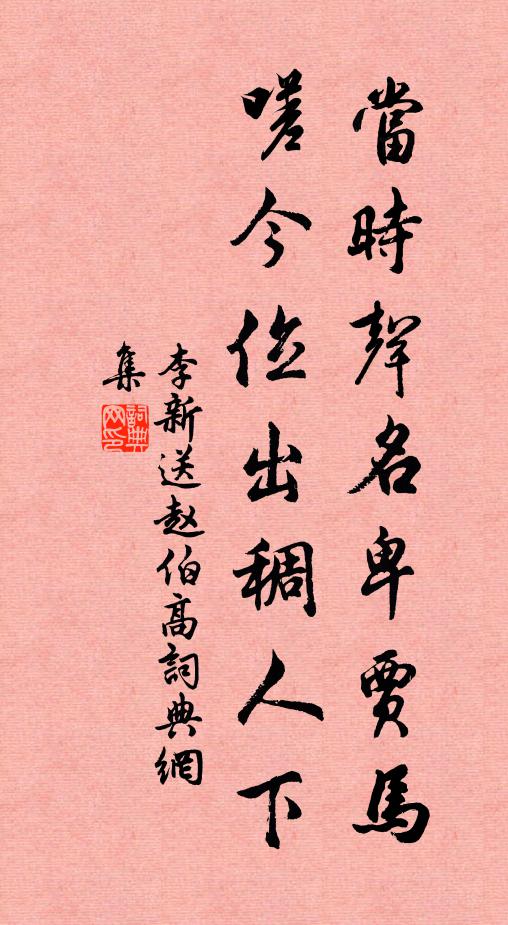 當時聲名卑賈馬
嗟今位出稠人下
李新送赵伯高詞典網
集
詞典網印